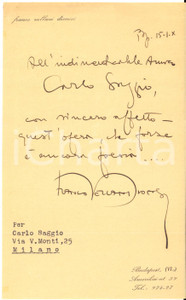 franco vellani dionisi
Bp. 15.1.X
All'indimenticabile Amico
Carlo Saggio,
con sincero affetto
quest'opera, che forse
è ancora
Franco Vellani Dionisi
Per
Carlo Saggio
Via V.Monti,25
Milano
Budapest, (VI.)